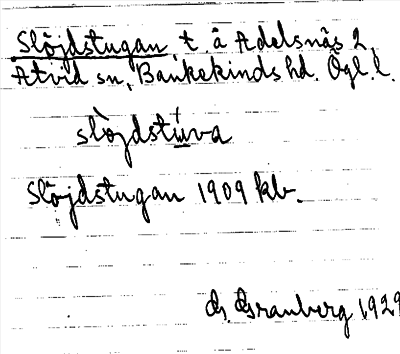 Slöjdstugan, t. å Adelsnäs 2,
Åtvid sn, Bankekinds hd. Ögl. l.
slo̊̀jdstu̲va
Slöjdstugan 1909 kb.
G. Granberg 1929